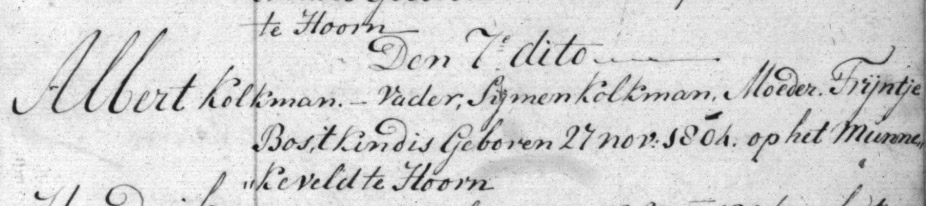 te Hoorn
Den 7e. dito
Albert Kolkman. - Vader, Sijmen Kolkman. Moeder. Trijntje
Bos, t kind is Geboren 27 nov: 1804. op het Munne„
„keveld te Hoorn